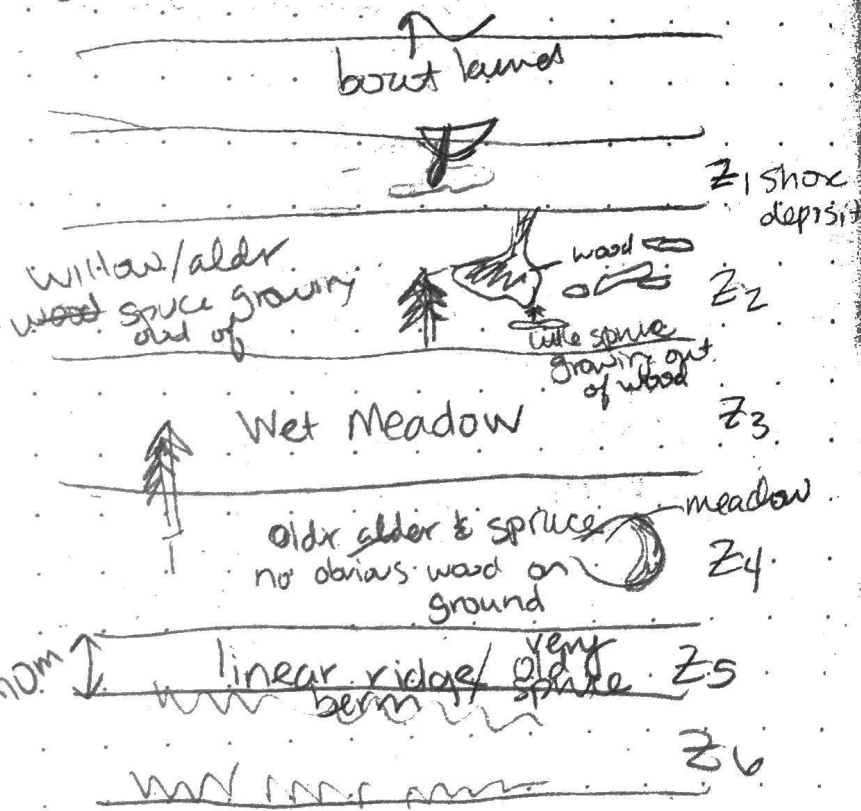 bout launds
Z1 shore
deposit
Willow/aldr
wood spruce growing
out of
wood
Z2
little spruce
growing out
of wood
Wet Meadow
Z3
meadow
oldr alder & spruce
no obvious wood on
ground
Z4
10m
linear ridge/
berm
very
old
spruce
Z5
Z6